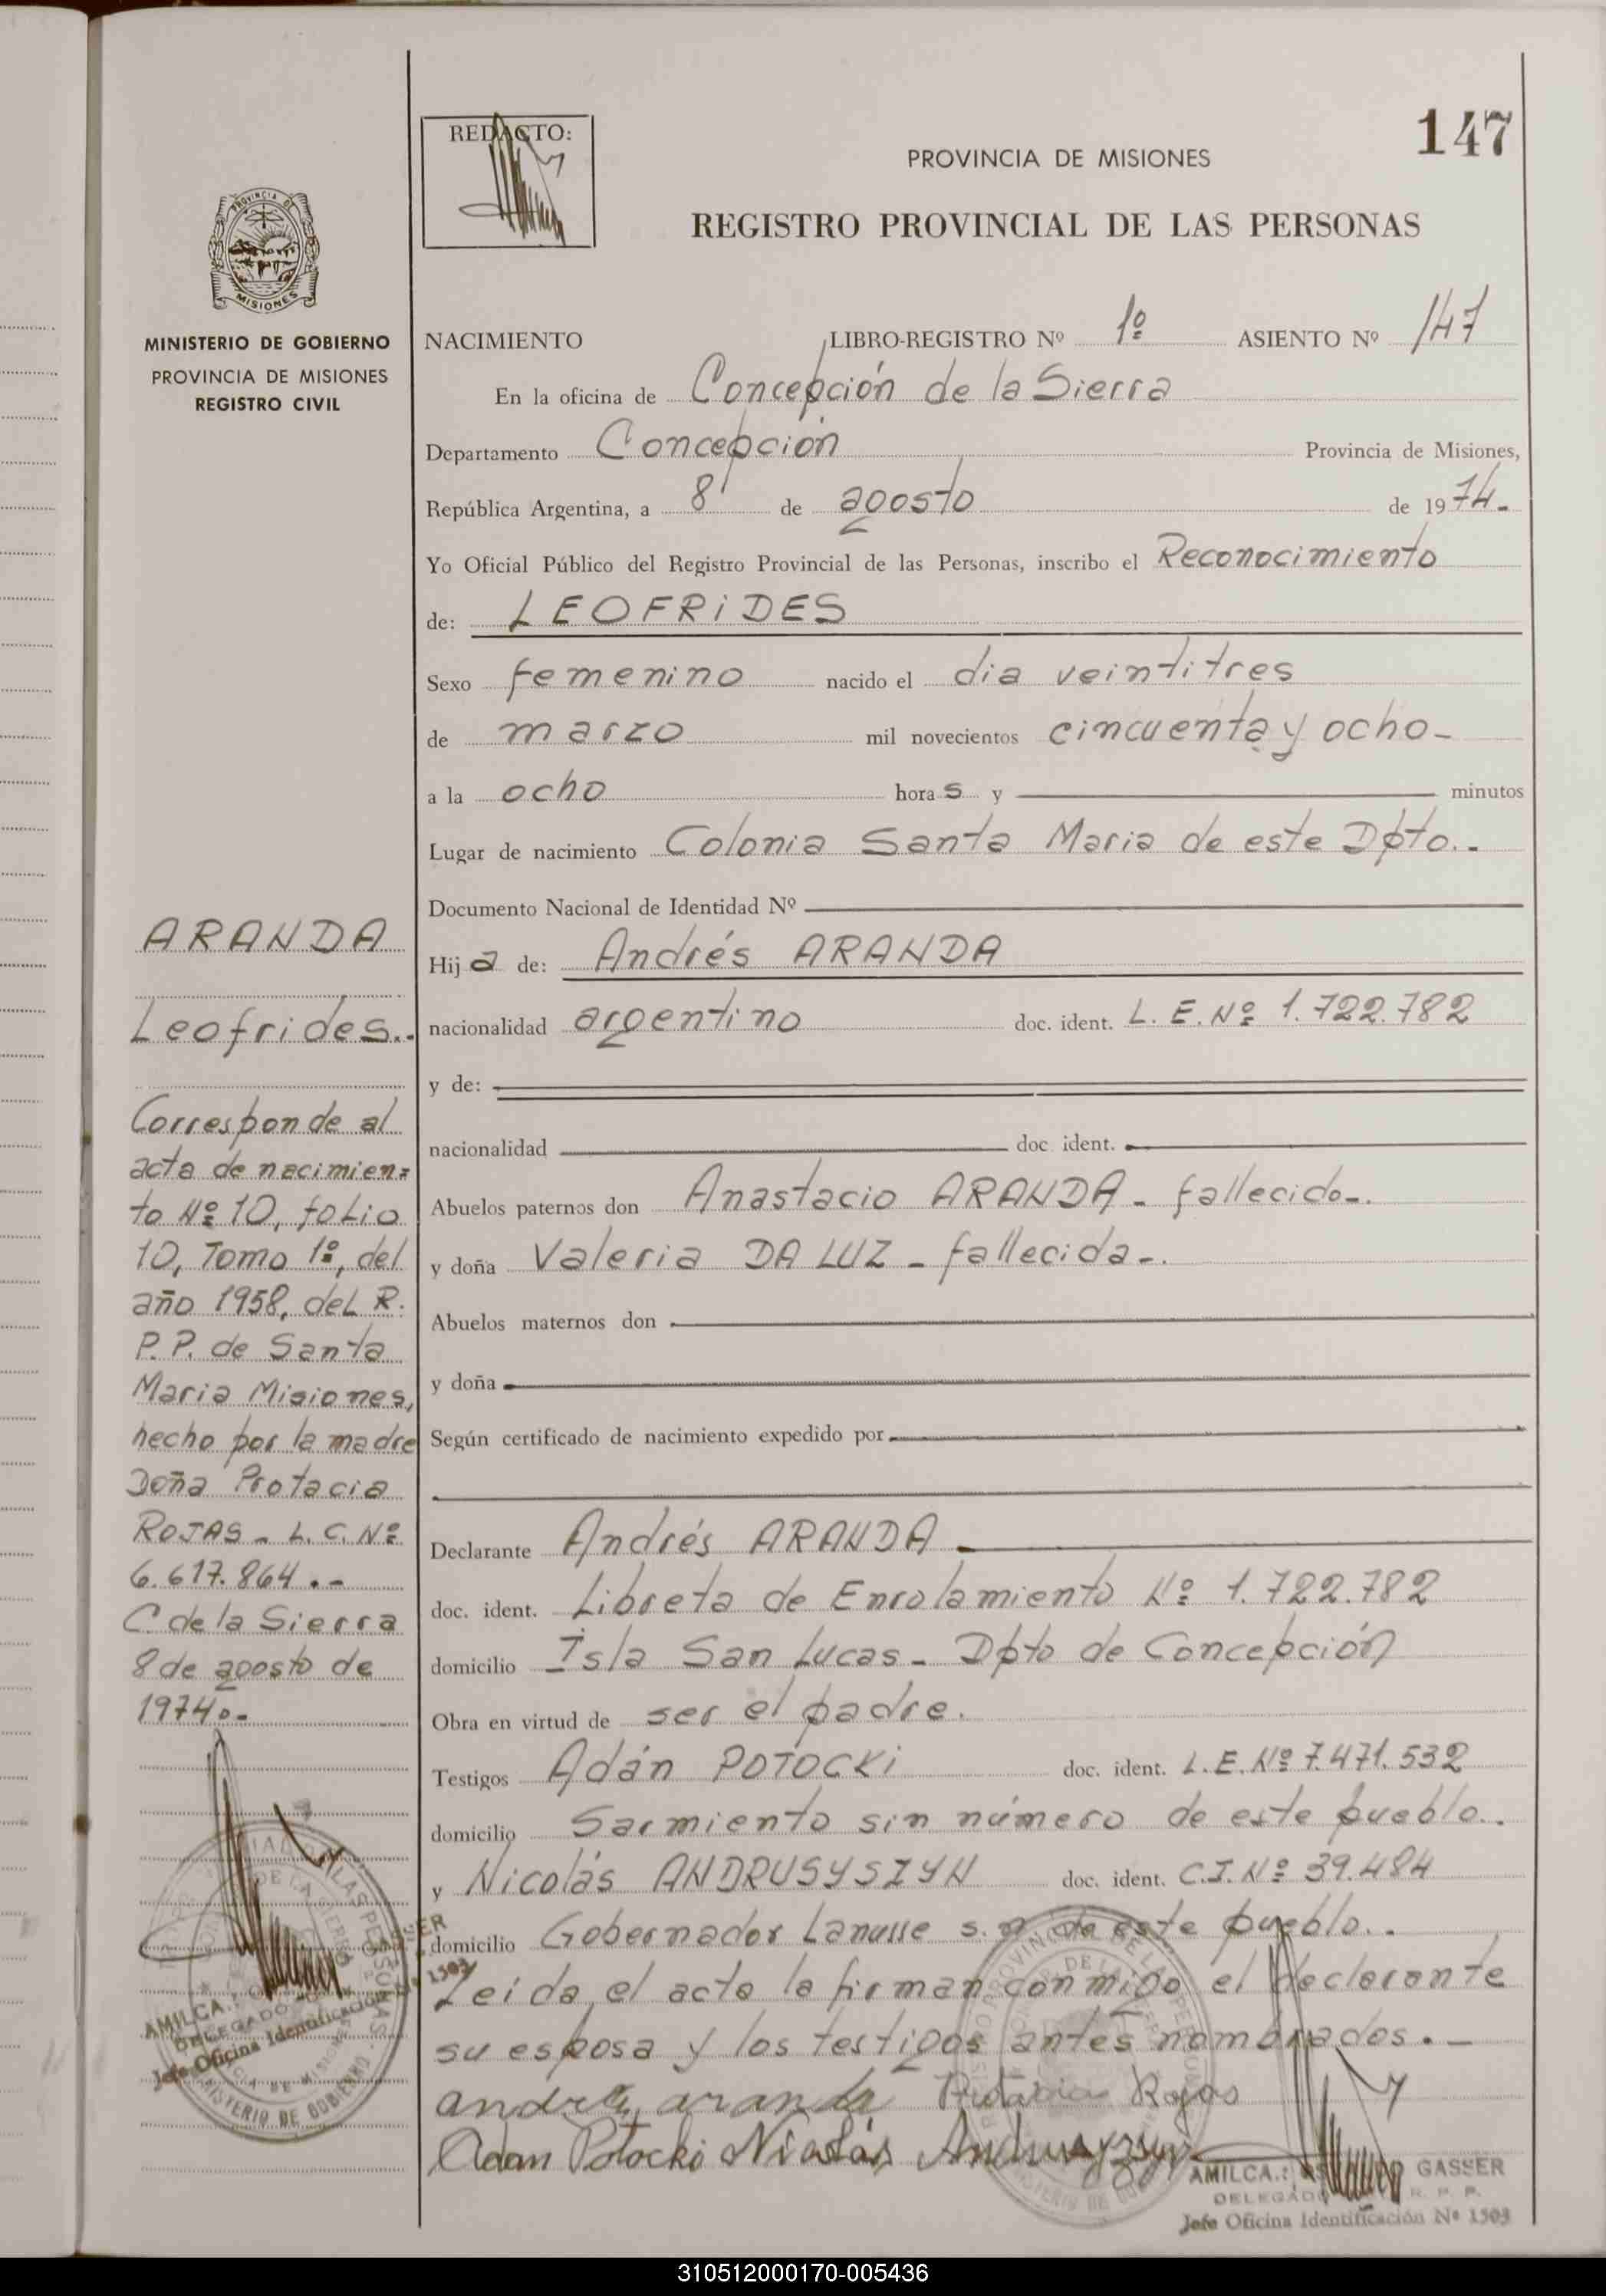 147
REDACTO:
PROVINCIA DE MISIONES
REGISTRO PROVINCIAL DE LAS PERSONAS
PROVINCIA DE
MISIONES
MINISTERIO DE GOBIERNO
PROVINCIA DE MISIONES
REGISTRO CIVIL
NACIMIENTO LIBRO-REGISTRO Nº 1º ASIENTO Nº 147
En la oficina de Concepción de la Sierra
Departamento Concepción Provincia de Misiones,
República Argentina, a 8 de agosto de 1974.
Yo Oficial Público del Registro Provincial de las Personas, inscribo el Reconocimiento
de: LEOFRIDES
Sexo femenino nacido el dia veintitres
de marzo mil novecientos cincuenta y ocho-
a la ocho horas y minutos
Lugar de nacimiento Colonia Santa Maria de este Dpto..
Documento Nacional de Identidad Nº
Hija de: Andrés ARANDA
nacionalidad argentino doc. ident. L. E. Nº 1.722.782
y de:
nacionalidad doc ident.
Abuelos paternos don Anastacio ARANDA - fallecido-.
y doña Valeria DA LUZ - fallecida-.
Abuelos maternos don
y doña
Según certificado de nacimiento expedido por
Declarante Andrés ARANDA
doc. ident. Libreta de Enrolamiento Nº 1.722.782
domicilio Isla San Lucas - Dpto de Concepción
Obra en virtud de ser el padre.
Testigos Adán POTOCKi doc. ident. L.E. Nº 7.471.532
domicilio Sarmiento sin número de este pueblo..
y Nicolás ANDRUSYSZYN doc. ident. C.I. Nº 39.484
domicilio Gobernador Lanusse s.n. de este pueblo..
Leida el acta la firman conmigo el declarante
su esposa y los testigos antes nombrados.-
andres aranda Protacia Rojas
Adan Potocki Nicolás Andrusyszyn
GASSER
DELEGADO R. P. P.
Jefe Oficina Identificación Nº 1503
ARANDA
Leofrides..
Corresponde al
acta de nacimien=
to Nº 10, folio
10, Tomo 1º, del
año 1958, del R.
P. P. de Santa
Maria Misiones,
hecho por la madre
Doña Protacia
ROJAS - L. C. Nº
6.617.864.-
C. de la Sierra
8 de agosto de
1974.-
GASSER
DELEGADO
Jefe Oficina Identificación Nº 1503
MINISTERIO DE GOBIERNO
310512000170-005436